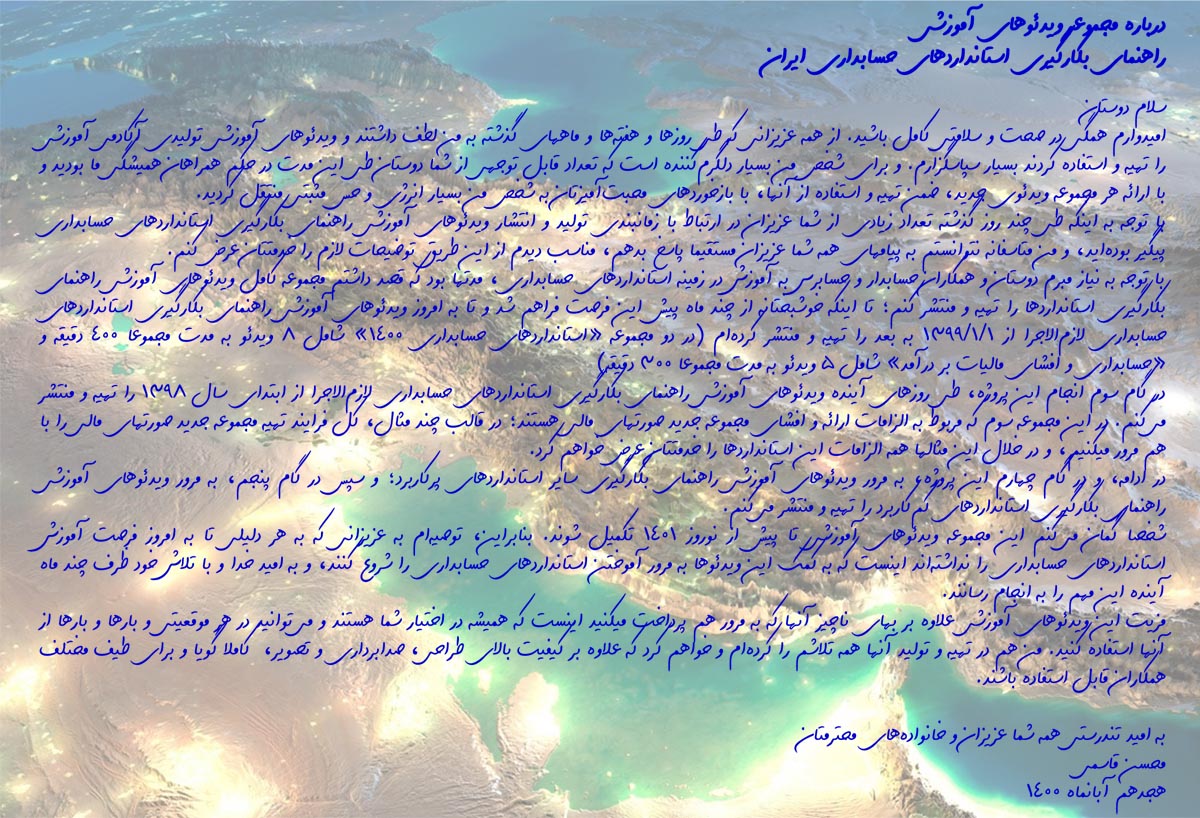 درباره مجموعه ویدئوهای آموزش
راهنمای بکارگیری استانداردهای حسابداری ایران
سلام دوستان
امیدوارم همگی در صحت و سلامتی کامل باشید. از همه عزیزانی که طی روزها و هفته‌ها و ماههای گذشته به من لطف داشتند و ویدئوهای آموزش تولیدی آکادمی آموزش
را تهیه و استفاده کردند بسیار سپاسگزارم. و برای شخص من بسیار دلگرم‌کننده است که تعداد قابل توجهی از شما دوستان طی این مدت در حکم همراهان همیشگی ما بودید و
با ارائه هر مجموعه ویدئوی جدید، ضمن تهیه و استفاده از آنها، با بازخوردهای محبت‌آمیزتان به شخص من بسیار انرژی و حس مثبتی منتقل کردید.
با توجه به اینکه طی چند روز گذشته تعداد زیادی از شما عزیزان در ارتباط با زمانبندی تولید و انتشار ویدئوهای آموزش راهنمای بکارگیری استانداردهای حسابداری
پیگیر بوده‌اید، و من متاسفانه نتوانستم به پیامهای همه شما عزیزان مستقیما پاسخ بدهم، مناسب دیدم از این طریق توضیحات لازم را خدمتتان عرض کنم.
با توجه به نیاز مبرم دوستان و همکاران حسابدار و حسابرس به آموزش در زمینه استانداردهای حسابداری، مدتها بود که قصد داشتم مجموعه کامل ویدئوهای آموزش راهنمای
بکارگیری استانداردها را تهیه و منتشر کنم؛ تا اینکه خوشبختانه از چند ماه پیش این فرصت فراهم شد و تا به امروز ویدئوهای آموزش راهنمای بکارگیری استانداردهای
حسابداری لازم‌الاجرا از ۱۳۹۹/۱/۱ به بعد را تهیه و منتشر کرده‌ام (در دو مجموعه «استانداردهای حسابداری ۱۴۰۰» شامل ۸ ویدئو به مدت مجموعا ۴۰۰ دقیقه و
«حسابداری و افشای مالیات بر درآمد» شامل ۵ ویدئو به مدت مجموعا ۳۰۰ دقیقه)
در گام سوم انجام این پروژه، طی روزهای آینده ویدئوهای آموزش راهنمای بکارگیری استانداردهای حسابداری لازم‌الاجرا از ابتدای سال ۱۳۹۸ را تهیه و منتشر
می‌کنم. در این مجموعه سوم که مربوط به الزامات ارائه و افشای مجموعه جدید صورتهای مالی هستند؛ در قالب چند مثال، کل فرایند تهیه مجموعه جدید صورتهای مالی را با
هم مرور میکنیم، و در خلال این مثالها همه الزامات این استانداردها را خدمتتان عرض خواهم کرد.
در ادامه، و در گام چهارم این پروژه، به مرور ویدئوهای آموزش راهنمای بکارگیری سایر استانداردهای پرکاربرد؛ و سپس در گام پنجم، به مرور ویدئوهای آموزش
راهنمای بکارگیری استانداردهای کم کاربرد را تهیه و منتشر می‌کنم.
شخصا گمان می‌کنم این مجموعه ویدئوهای آموزشی تا پیش از نوروز ۱۴۰۱ تکمیل شوند. بنابراین، توصیه‌ام به عزیزانی که به هر دلیلی تا به امروز فرصت آموزش
استانداردهای حسابداری را نداشته‌اند اینست که به کمک این ویدئوها به مرور آموختن استانداردهای حسابداری را شروع کنند، و به امید خدا و با تلاش خود ظرف چند ماه
آینده این مهم را به انجام رسانند.
مزیت این ویدئوهای آموزشی علاوه بر بهای ناچیز آنها که به مرور هم پرداخت میکنید اینست که همیشه در اختیار شما هستند و می‌توانید در هر موقعیتی و بارها و بارها از
آنها استفاده کنید. من هم در تهیه و تولید آنها همه تلاشم را کرده‌ام و خواهم کرد که علاوه بر کیفیت بالای طراحی، صدابرداری و تصویر، کاملا گویا و برای طیف مختلف
همکاران قابل استفاده باشند.
به امید تندرستی همه شما عزیزان و خانواده‌های محترمتان
محسن قاسمی
هجدهم آبانماه ۱۴۰۰